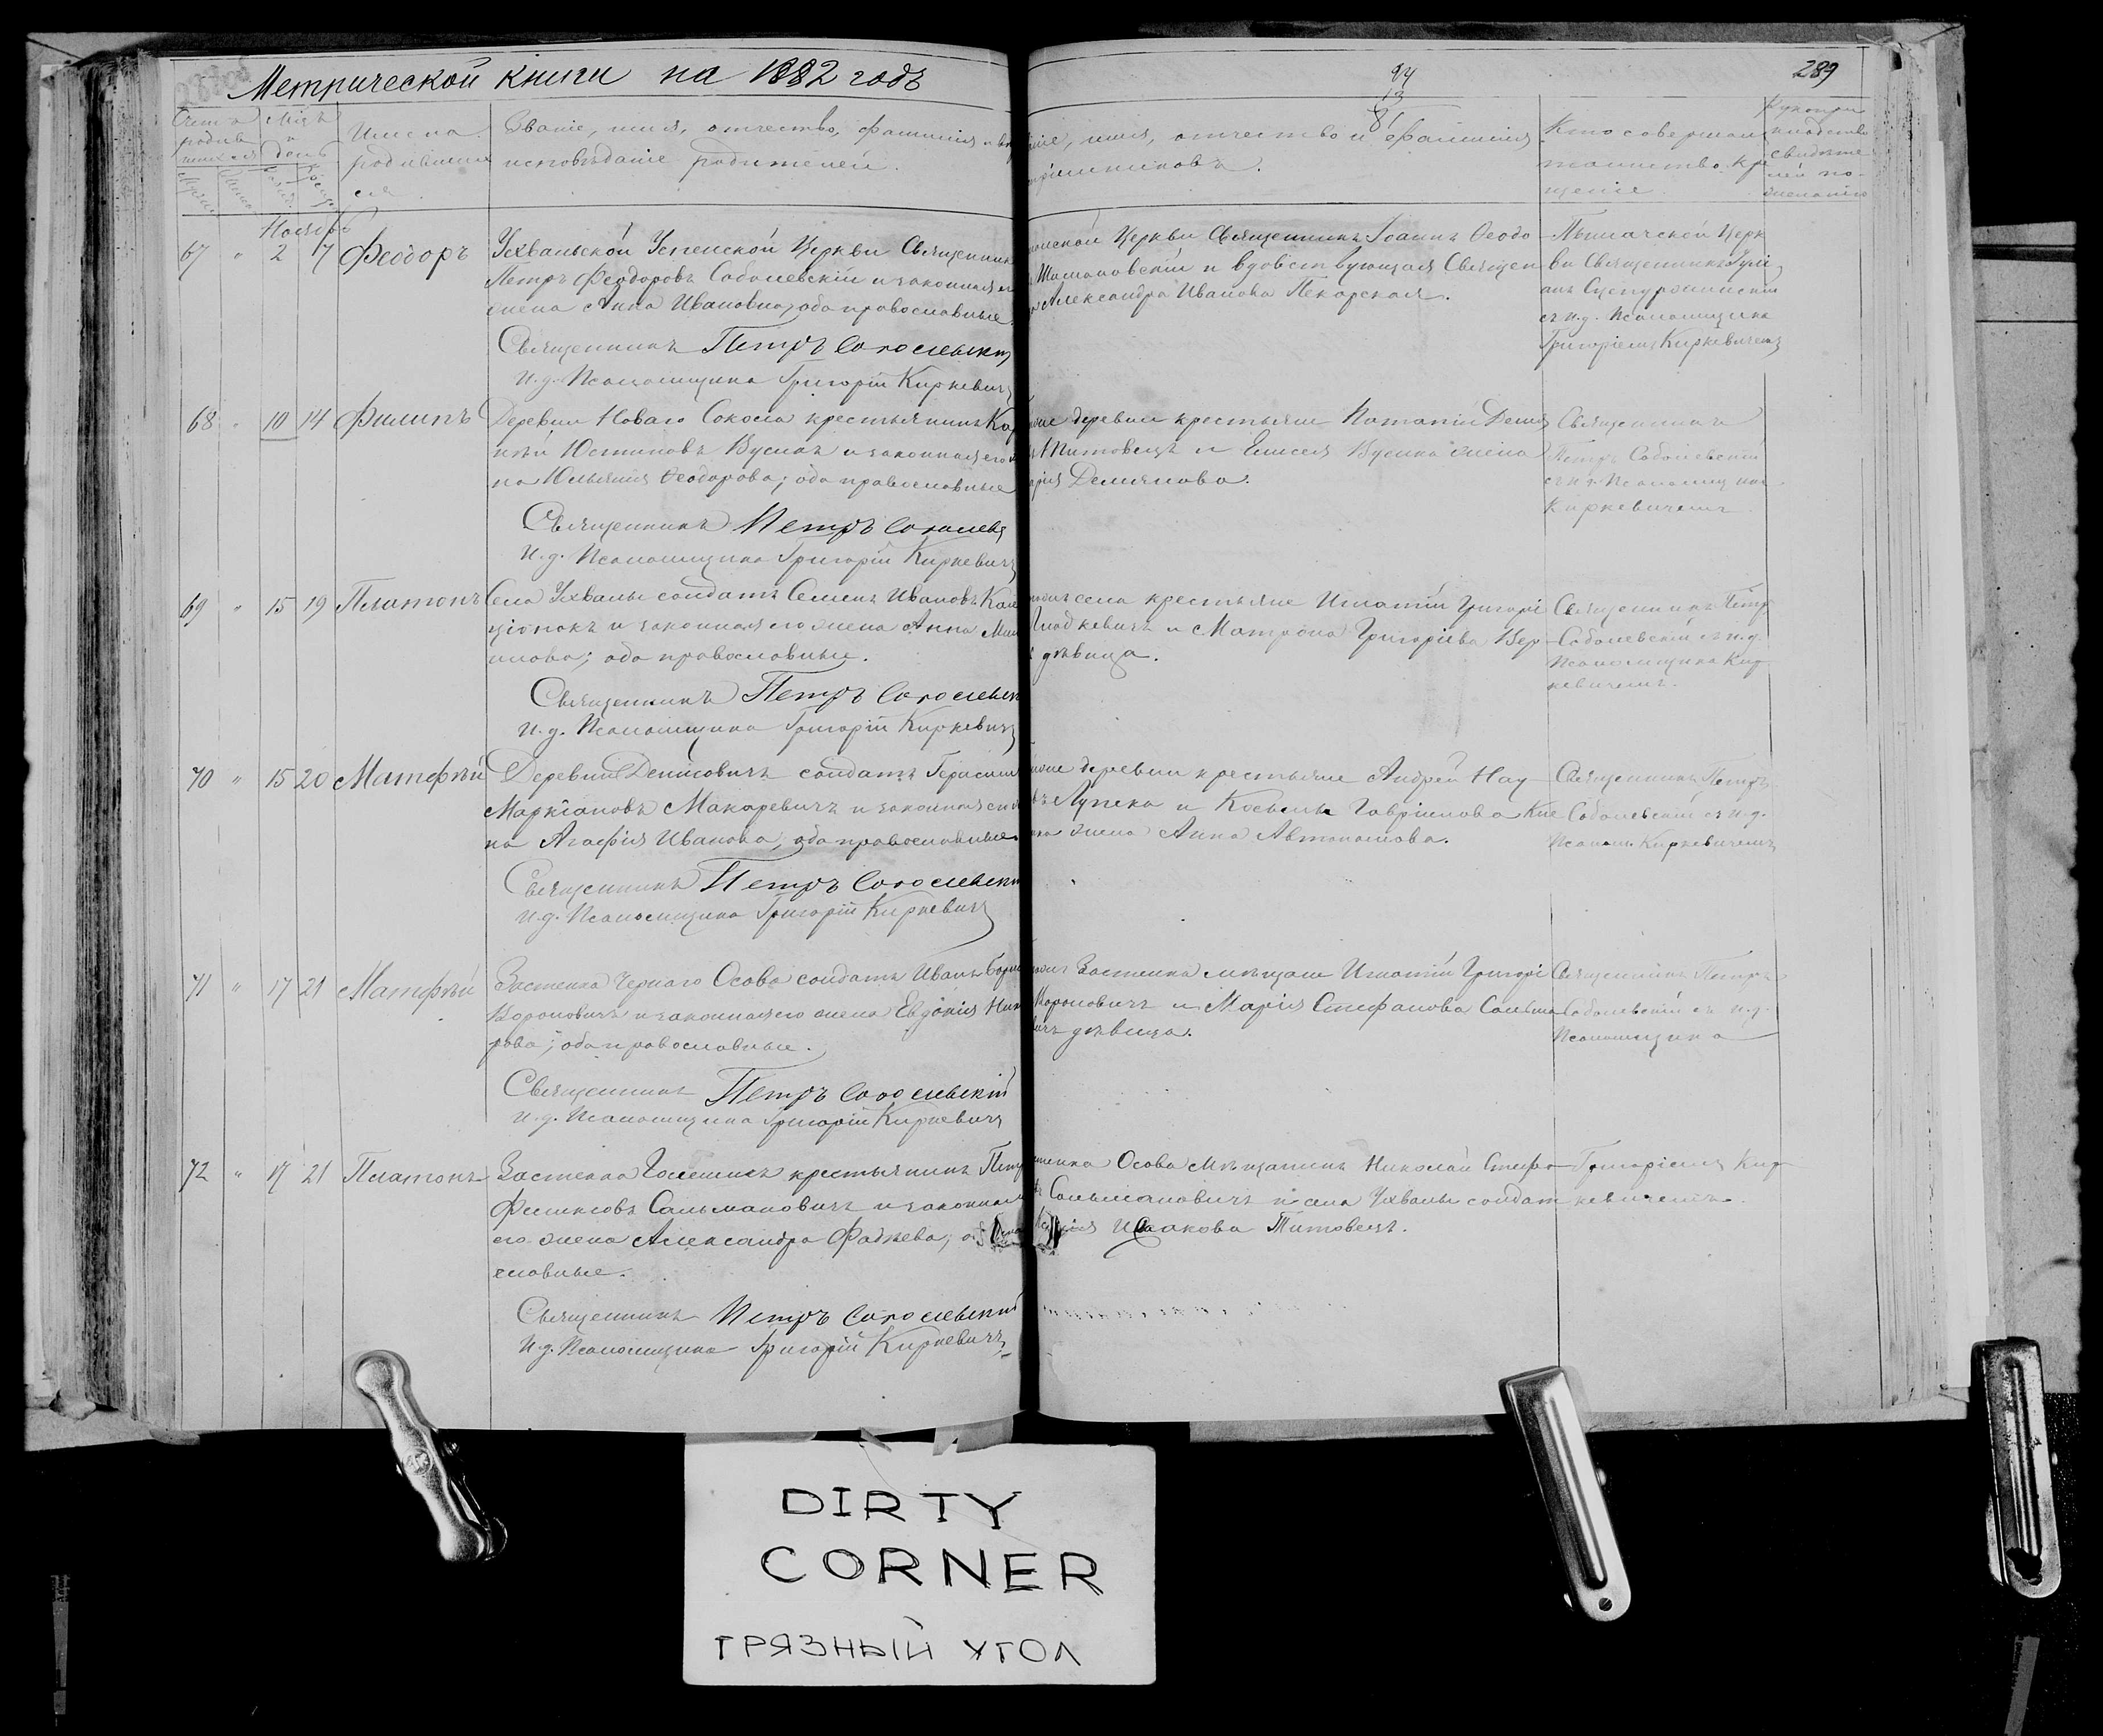 Метрической книги на 1882 годъ
94
13
8
289
Счетъ родившихся
Мѣся и день
Имена родившихся
Званіе, имя, отчество, фамилія и
исповѣданіе родителей.
ніе, имя, отчество и фамилія
пріемниковъ.
Кто совершал
таинство кре
щеніе
Рукопри
кладство
свидѣте
лей по
желанію
Ноябрь
67 " 2 7 Феодоръ
Ухвальской Успенской Церкви Священник
Петръ Феодоровъ Соболевскій и законная его
жена Анна Ивановна; оба православные
Священникъ Петръ Соболевскій
и.д. Псаломщика Григорій Киркевичъ
Церкви Священникъ Іоаннъ Ѳеодо
и вдовствующая Священ
Александра Иванова Пекарская.
Церк
ви Священникъ
съ и.д. Псаломщика
Григоріемъ Киркевичемъ
68 " 10 14 Филипъ
Деревни Новаго Сокола крестьянинъ
Юстиновъ Бусилъ и законная его
на Юльянія Ѳеодорова; оба православные
Священникъ Петръ Соболевс
и.д. Псаломщика Григорій Киркевичъ
деревни крестьяне Потапій
Титовецъ и Елисея Бусила жена
Демьянова.
Священникъ
Петръ Соболевскій
съ и.д. Псаломщика
Киркевичемъ
69 " 15 19 Платонъ
Села Ухвалы солдатъ Семенъ Ивановъ
и законная его жена Анна
; оба православные.
Священникъ Петръ Соболевск
и.д. Псаломщика Григорій Киркевичъ
села крестьяне Игнатій Григорі
Гладкевичъ и Матрона Григоріева Вер
дѣвица.
Священникъ Петръ
Соболевскій съ и.д.
Псаломщика Кир
кевичемъ.
70 " 15 20 Матфѣй
Деревни Денисовичъ солдатъ Герасим
Маркіановъ Макаревичъ и законная его
на Агафія Иванова; оба православные
Священникъ Петръ Соболевскі
и.д. Псаломщика Григорій Киркевичъ
деревни крестьяне Андрей Нау
и Косьмы Гавріилова
жена Анна Автономова.
Священникъ Петръ
Соболевскій съ и.д.
Псалом. Киркевичемъ
71 " 17 21 Матфѣй
Застенка Чернаго Осова солдатъ Иванъ
Вороновичъ и законная его жена Евдокія
рова; оба православные.
Священникъ Петръ Соболевскій
и.д. Псаломщика Григорій Киркевичъ
Застенка мѣщане Игнатій Григорі
Вороновичъ и Марія Стефанова Сольма
дѣвица.
Священникъ Петръ
Соболевскій съ и.д.
Псаломщика
72 " 17 21 Платонъ
Застенка крестьянинъ Петр
Феликсовъ Сальмановичъ и законная
его жена Александра Фадѣева;
славные.
Священникъ Петръ Соболевскій
и.д. Псаломщика Григорій Киркевичъ
стенка Осова мѣщанинъ Николай Стефа
Сольмановичъ и села Ухвалы солдат
Исакова Титовецъ.
Григоріемъ Кир
кевичемъ.
DIRTY
CORNER
ГРЯЗНЫЙ УГОЛ